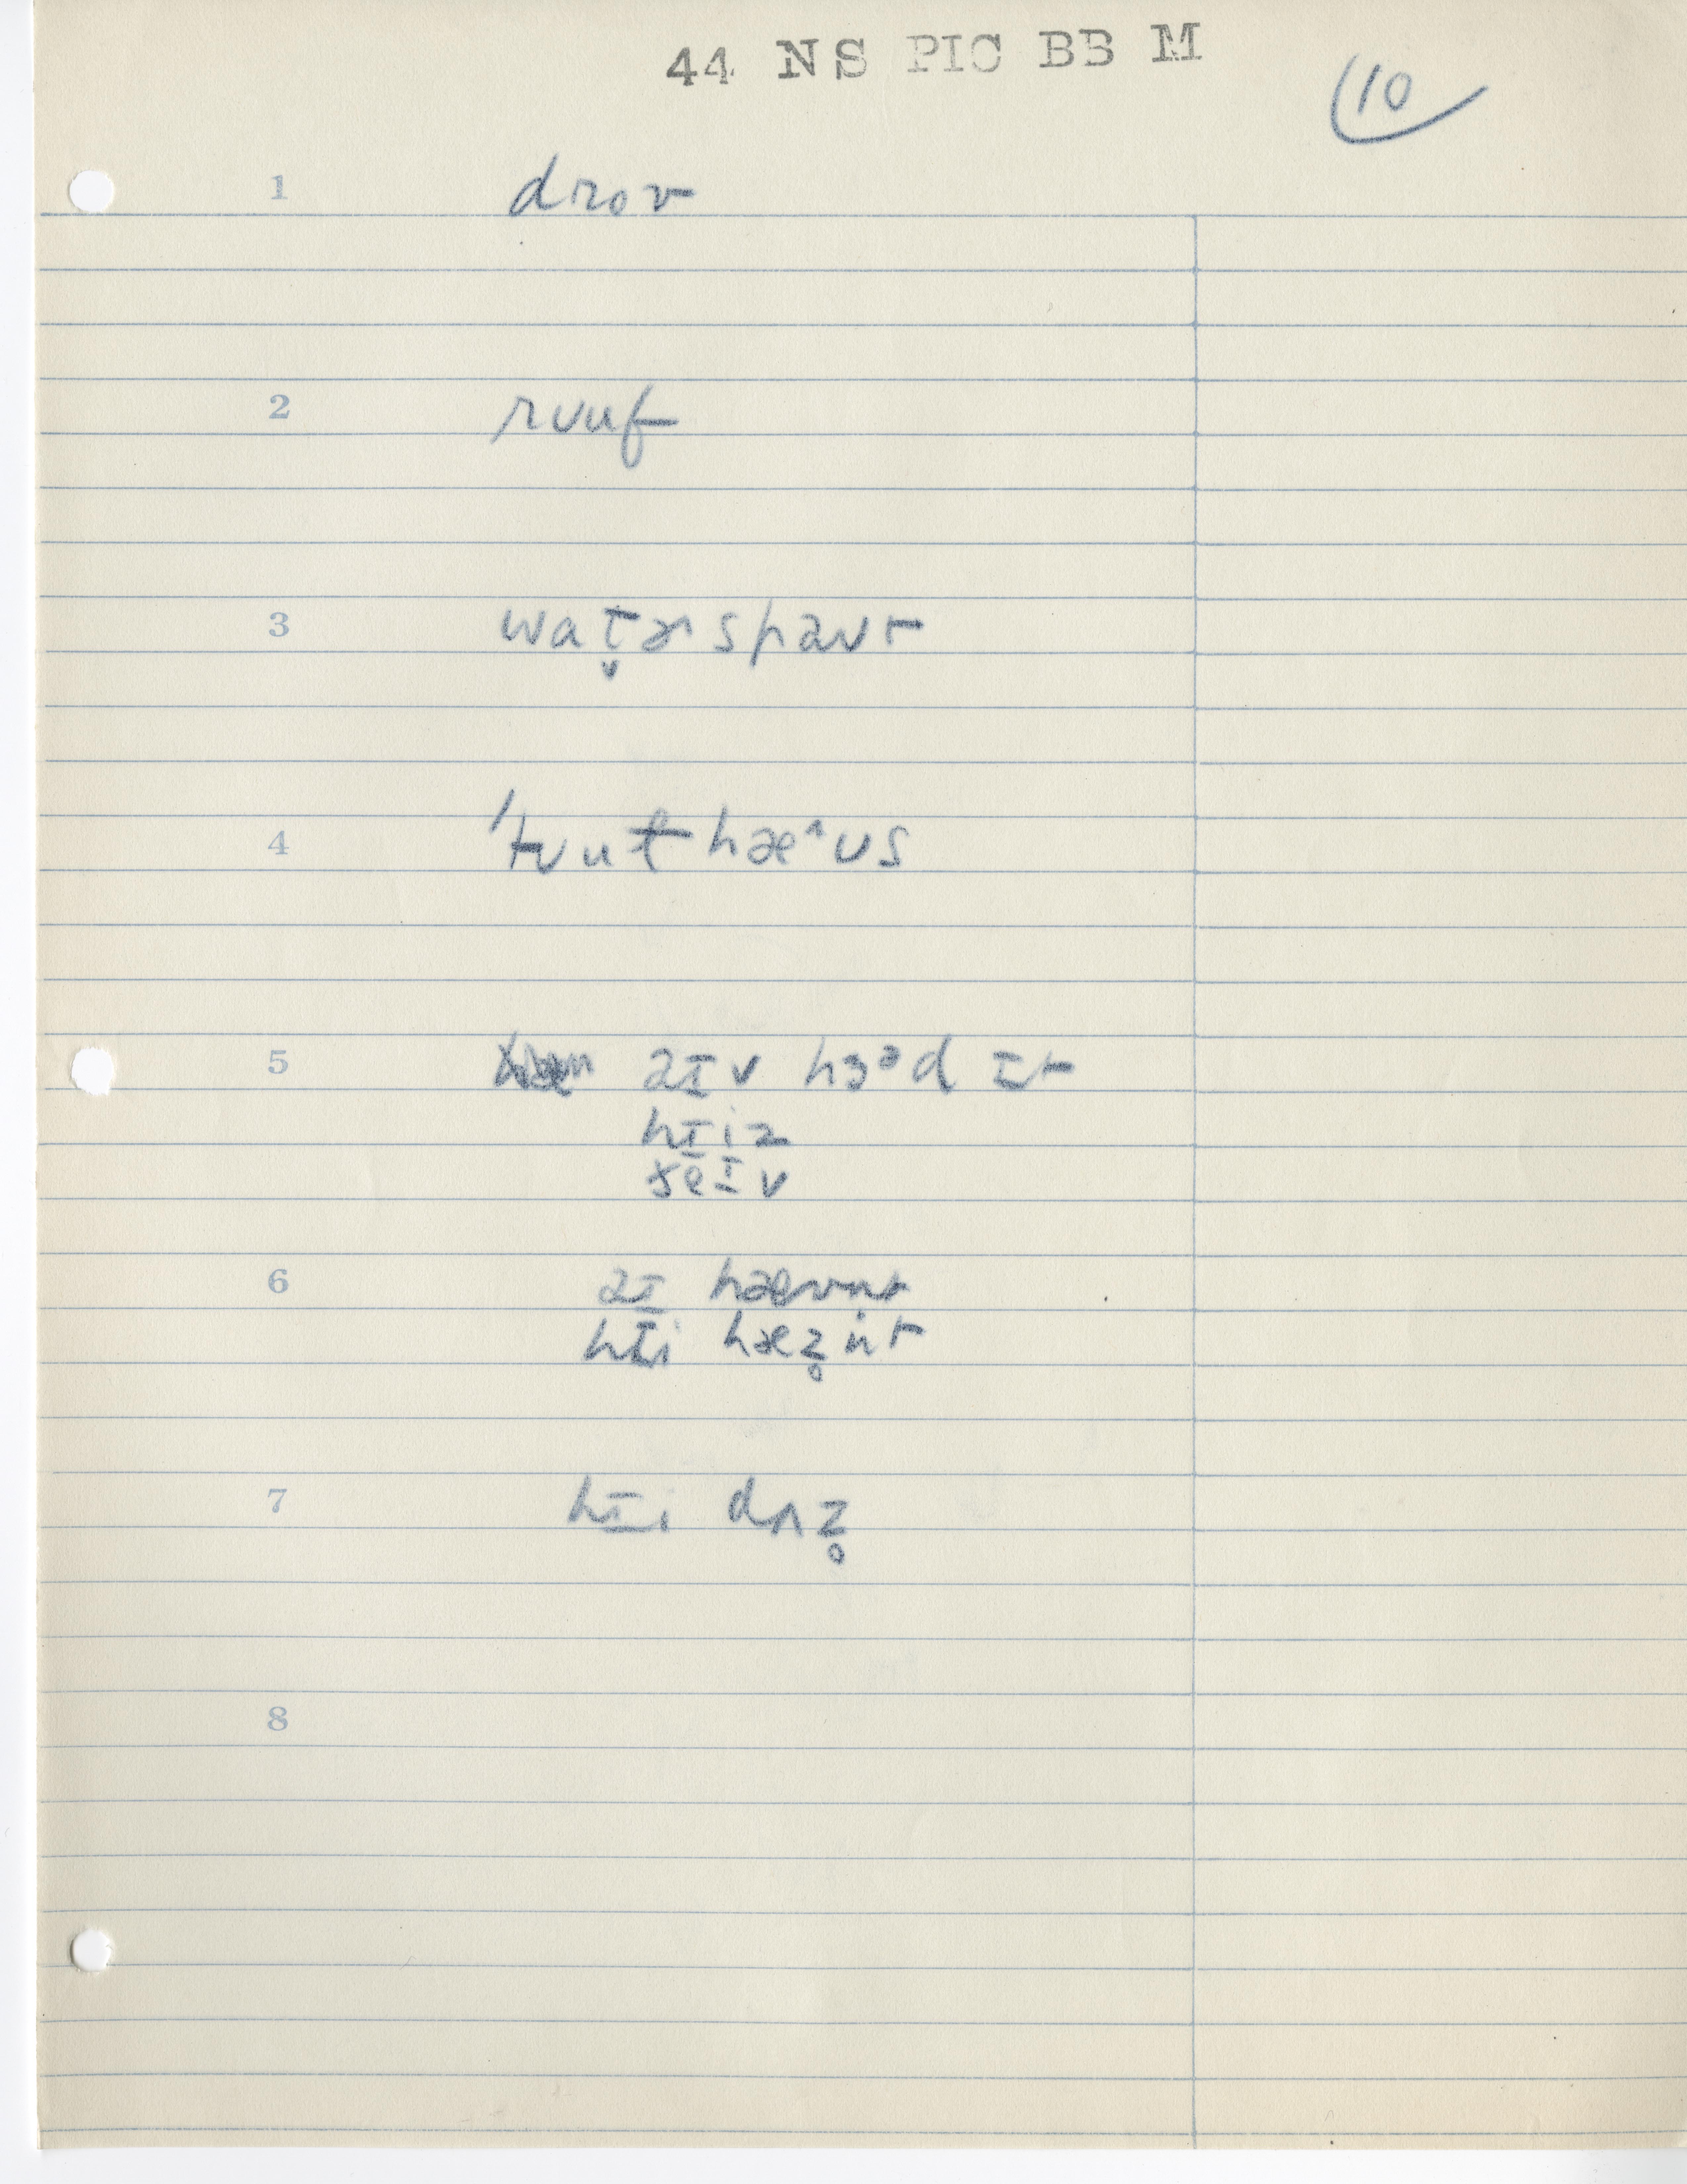 44 NS PIC BB M
10
1 drov
2 rʊuf
3 wat̬ɚ spaʊt
4 'tʊut hæ^ʊs
5 aɪv hɜᵊd ɪt
hɪiz
ðeɪv
6 aɪ hævn̩t
hɪi hæz̥n̩t
7 hɪi dʌz̥
8